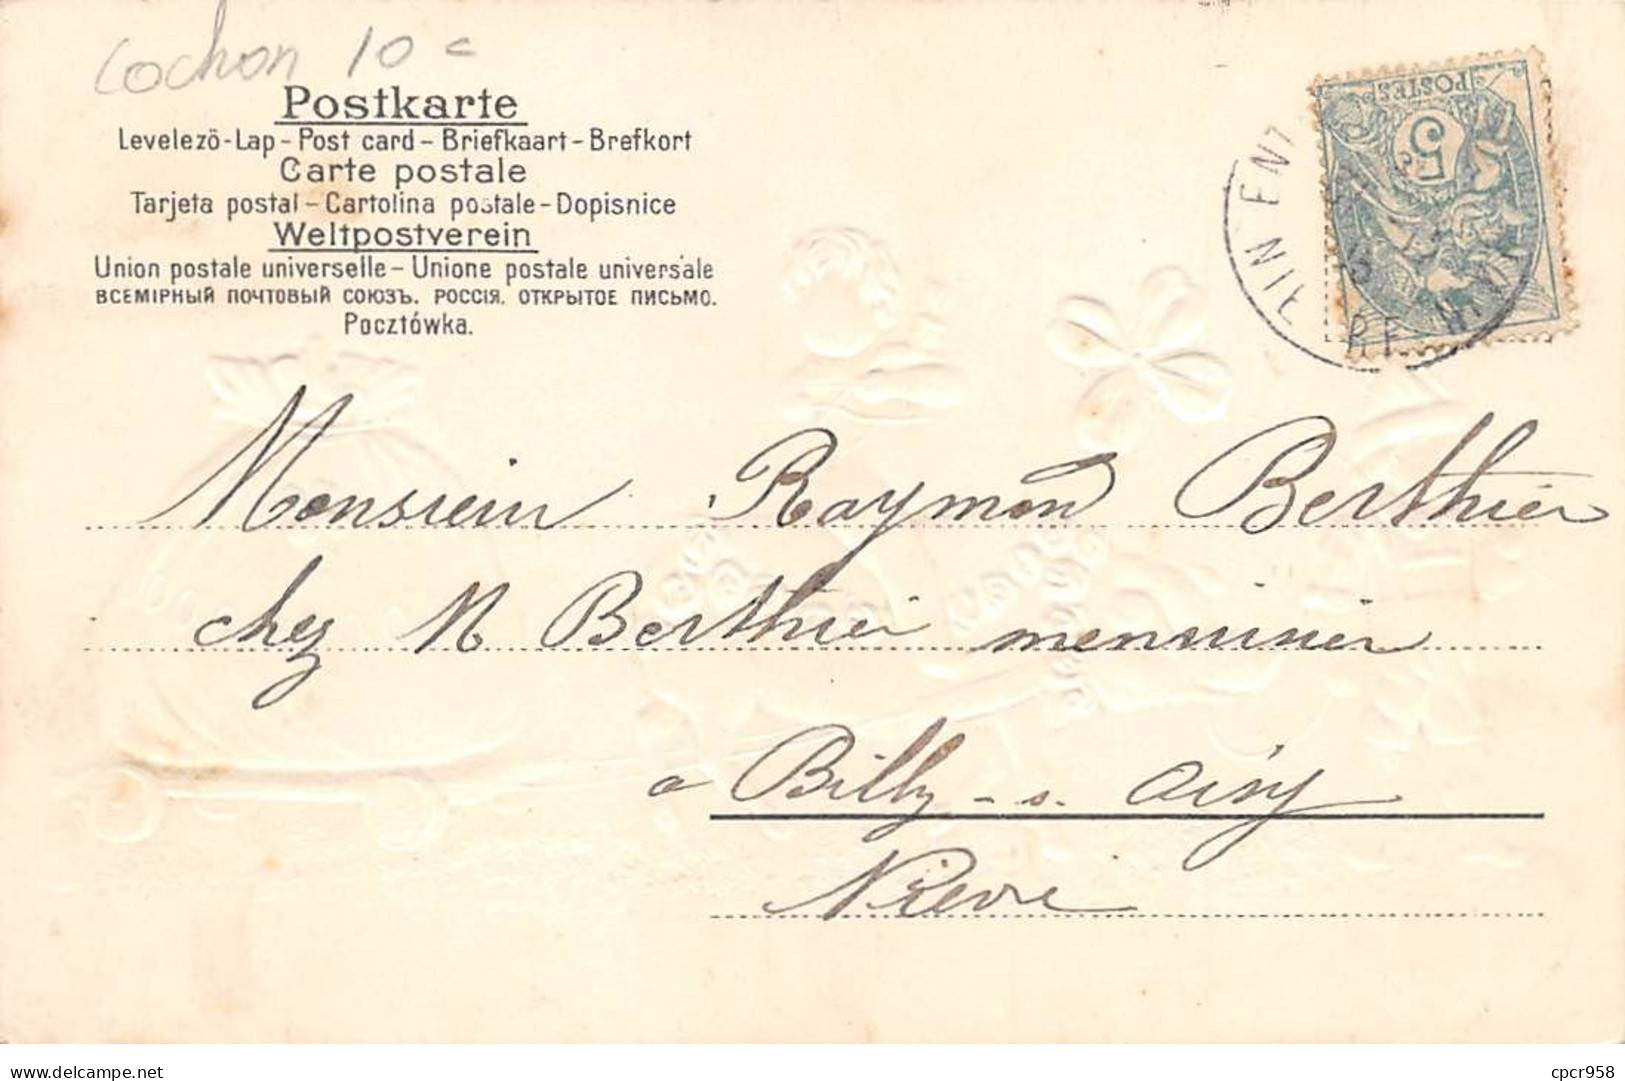 cochon 10 c
Postkarte
Levelező-Lap - Post card - Briefkaart - Brefkort
Carte postale
Tarjeta postal - Cartolina postale - Dopisnice
Weltpostverein
Union postale universelle - Unione postale universale
ВСЕМІРНЫЙ ПОЧТОВЫЙ СОЮЗЪ. РОССІЯ. ОТКРЫТОЕ ПИСЬМО.
Pocztówka.
POSTES
5c
Monsieur Raymond Berthier
chez M Berthier menuisier
a Billy - s. Oisy
Nièvre
delcampe.net
cpcr958